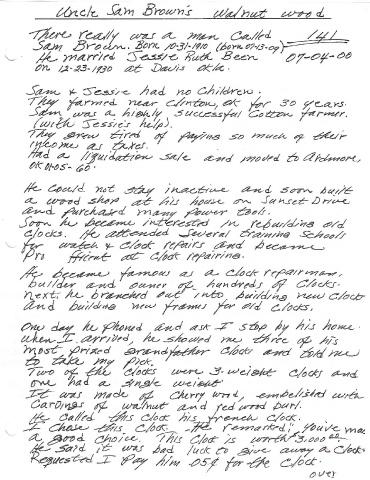 Uncle Sam Brown's Walnut wood
There really was a man called 141
Sam Brown. Born 10-31-1910 (born 07-13-09)
He married Jessie Ruth Been 07-04-00
on 12-23-1930 at Davis Okla.
Sam & Jessie had no Children.
They farmed near Clinton, OK for 30 years.
Sam was a highly successful Cotton farmer.
(with Jessie's help).
They grew tired of paying so much of their
income as taxes.
Had a liquidation sale and moved to Ardmore,
OK 01-05-60.
He could not stay inactive and soon built
a wood shop at his house on Sunset Drive
and purchased many power tools.
Soon he became interested in rebuilding old
clocks. He attended several training schools
for watch & clock repairs and became
Pro ficient at clock repairing.
He became famous as a clock repairman,
builder and owner of hundreds of clocks.
next, he branched out into building new clocks
and building new frames for old clocks.
One day he phoned and ask I stop by his home.
when I arrived, he showed me three of his
most prized grandfather clocks and told me
to take my pick.
Two of the clocks were 3-weight clocks and
one had a single weight
It was made of cherry wood, embelished with
Carvings of walnut and red wood burl.
He called this clock his french clock.
I chose this clock. He remarked; you've made
a good choice. This clock is worth $3,000.00
He said it was bad luck to give away a clock.
Requested I pay him 05¢ for the clock.
over